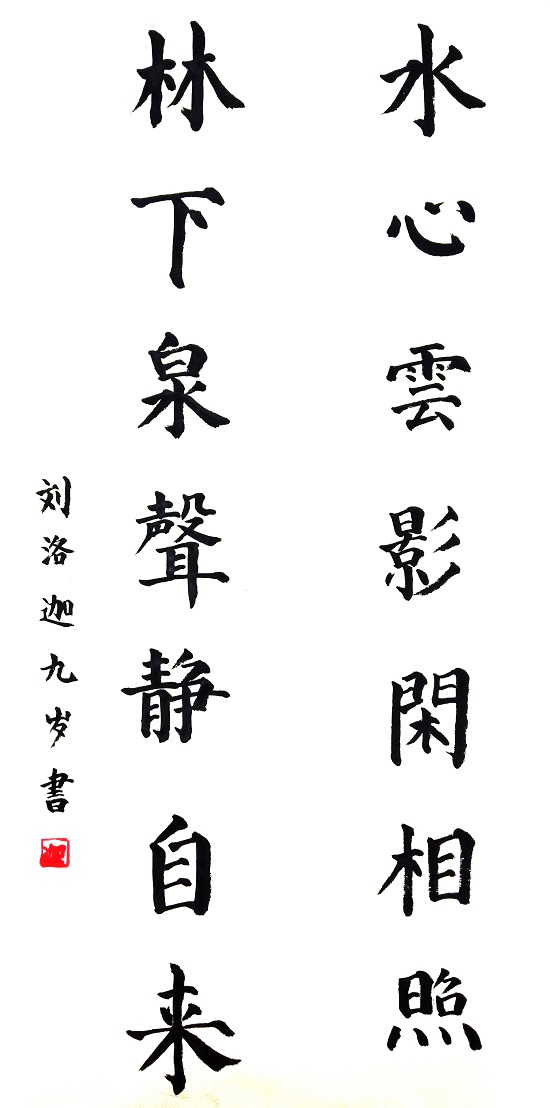 水心雲影閑相照
林下泉聲静自来
刘洛迦九岁書
迦